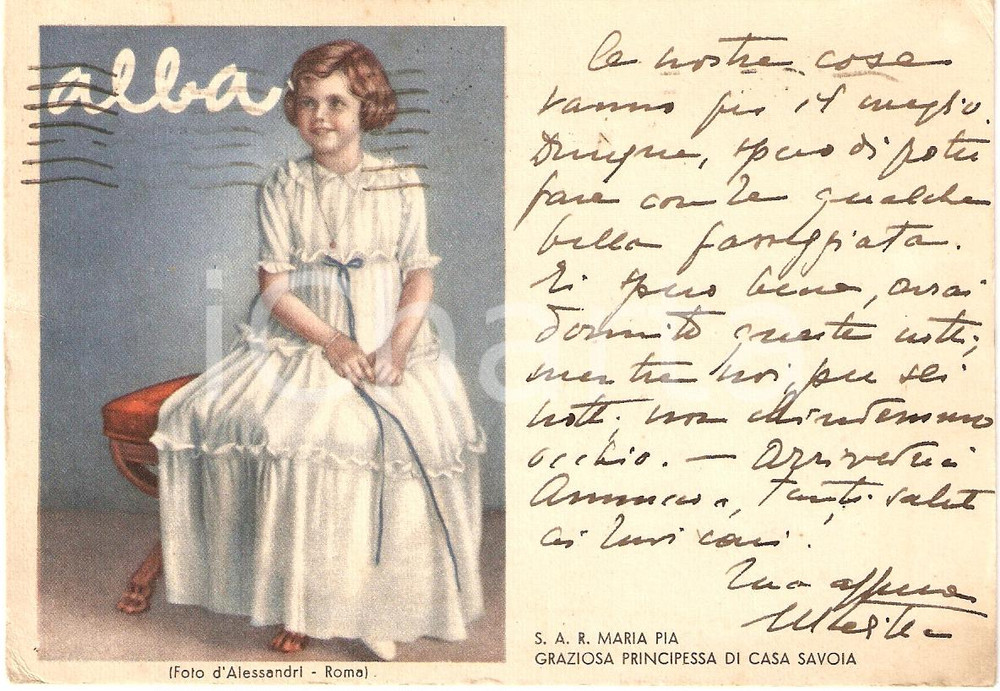 alba
le nostre cose
vanno per il meglio.
Dunque, spero di poter
fare con te qualche
bella passeggiata.
spero bene, avrai
dormito queste notti,
mentre noi, per sei
notti, non chiudemmo
occhio. — Arrivederci
tanti saluti
ai tuoi cari.
tua affma
S. A. R. MARIA PIA
GRAZIOSA PRINCIPESSA DI CASA SAVOIA
(Foto d'Alessandri - Roma).
iCharta